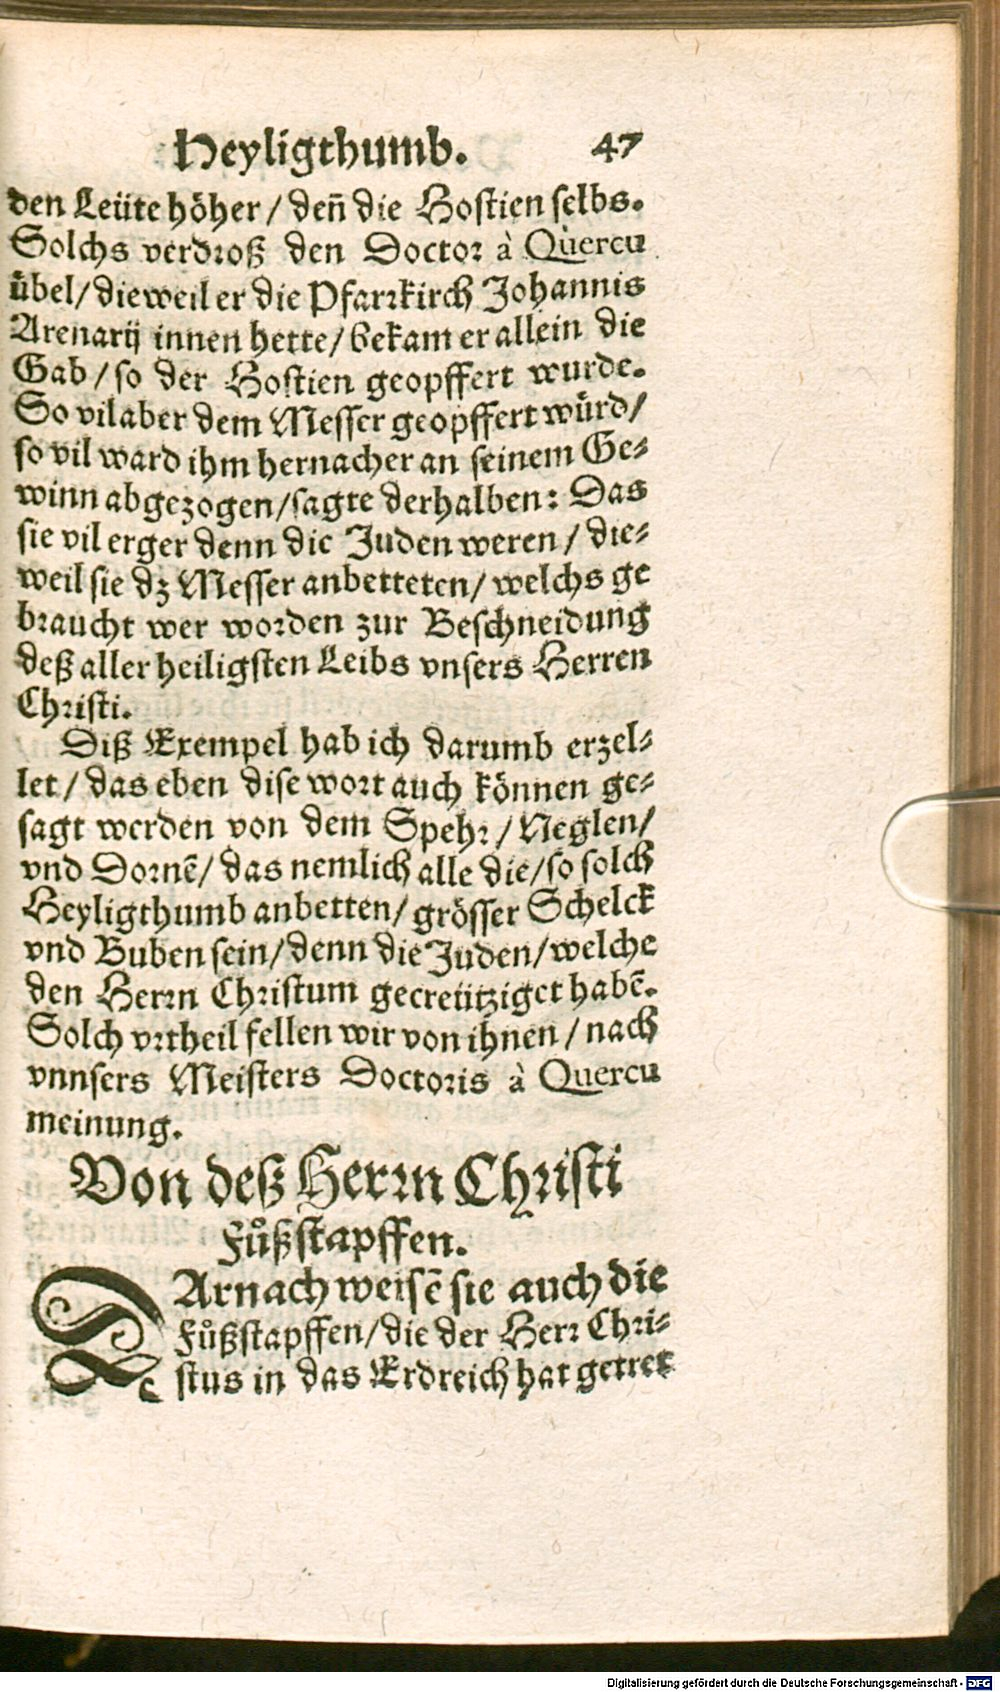 Heyligthumb. 47
den Leüte höher / deñ die Hostien selbs.
Solchs verdroß den Doctor à Quercu
übel / dieweil er die Pfarrkirch Johannis
Arenarij innen hette / bekam er allein die
Gab / so der Hostien geopffert wurde.
So vil aber dem Messer geopffert würd /
so vil ward ihm hernacher an seinem Ge-
winn abgezogen / sagte derhalben: Das
sie vil erger denn die Juden weren / die-
weil sie dz Messer anbetteten / welchs ge
braucht wer worden zur Beschneidung
deß aller heiligsten Leibs vnsers Herren
Christi.
Diß Exempel hab ich darumb erzel-
let / das eben dise wort auch können ge-
sagt werden von dem Spehr / Neglen /
vnd Dornē / das nemlich alle die / so solch
Heyligthumb anbetten / grösser Schelck
vnd Buben sein / denn die Juden / welche
den Herrn Christum gecreütziget habē.
Solch vrtheil fellen wir von ihnen / nach
vnnsers Meisters Doctoris à Quercu
meinung.
Von deß Herrn Christi
Fůßstapffen.
DArnach weisē sie auch die
Fůßstapffen / die der Herr Chri-
stus in das Erdreich hat getret
Digitalisierung gefördert durch die Deutsche Forschungsgemeinschaft - DFG